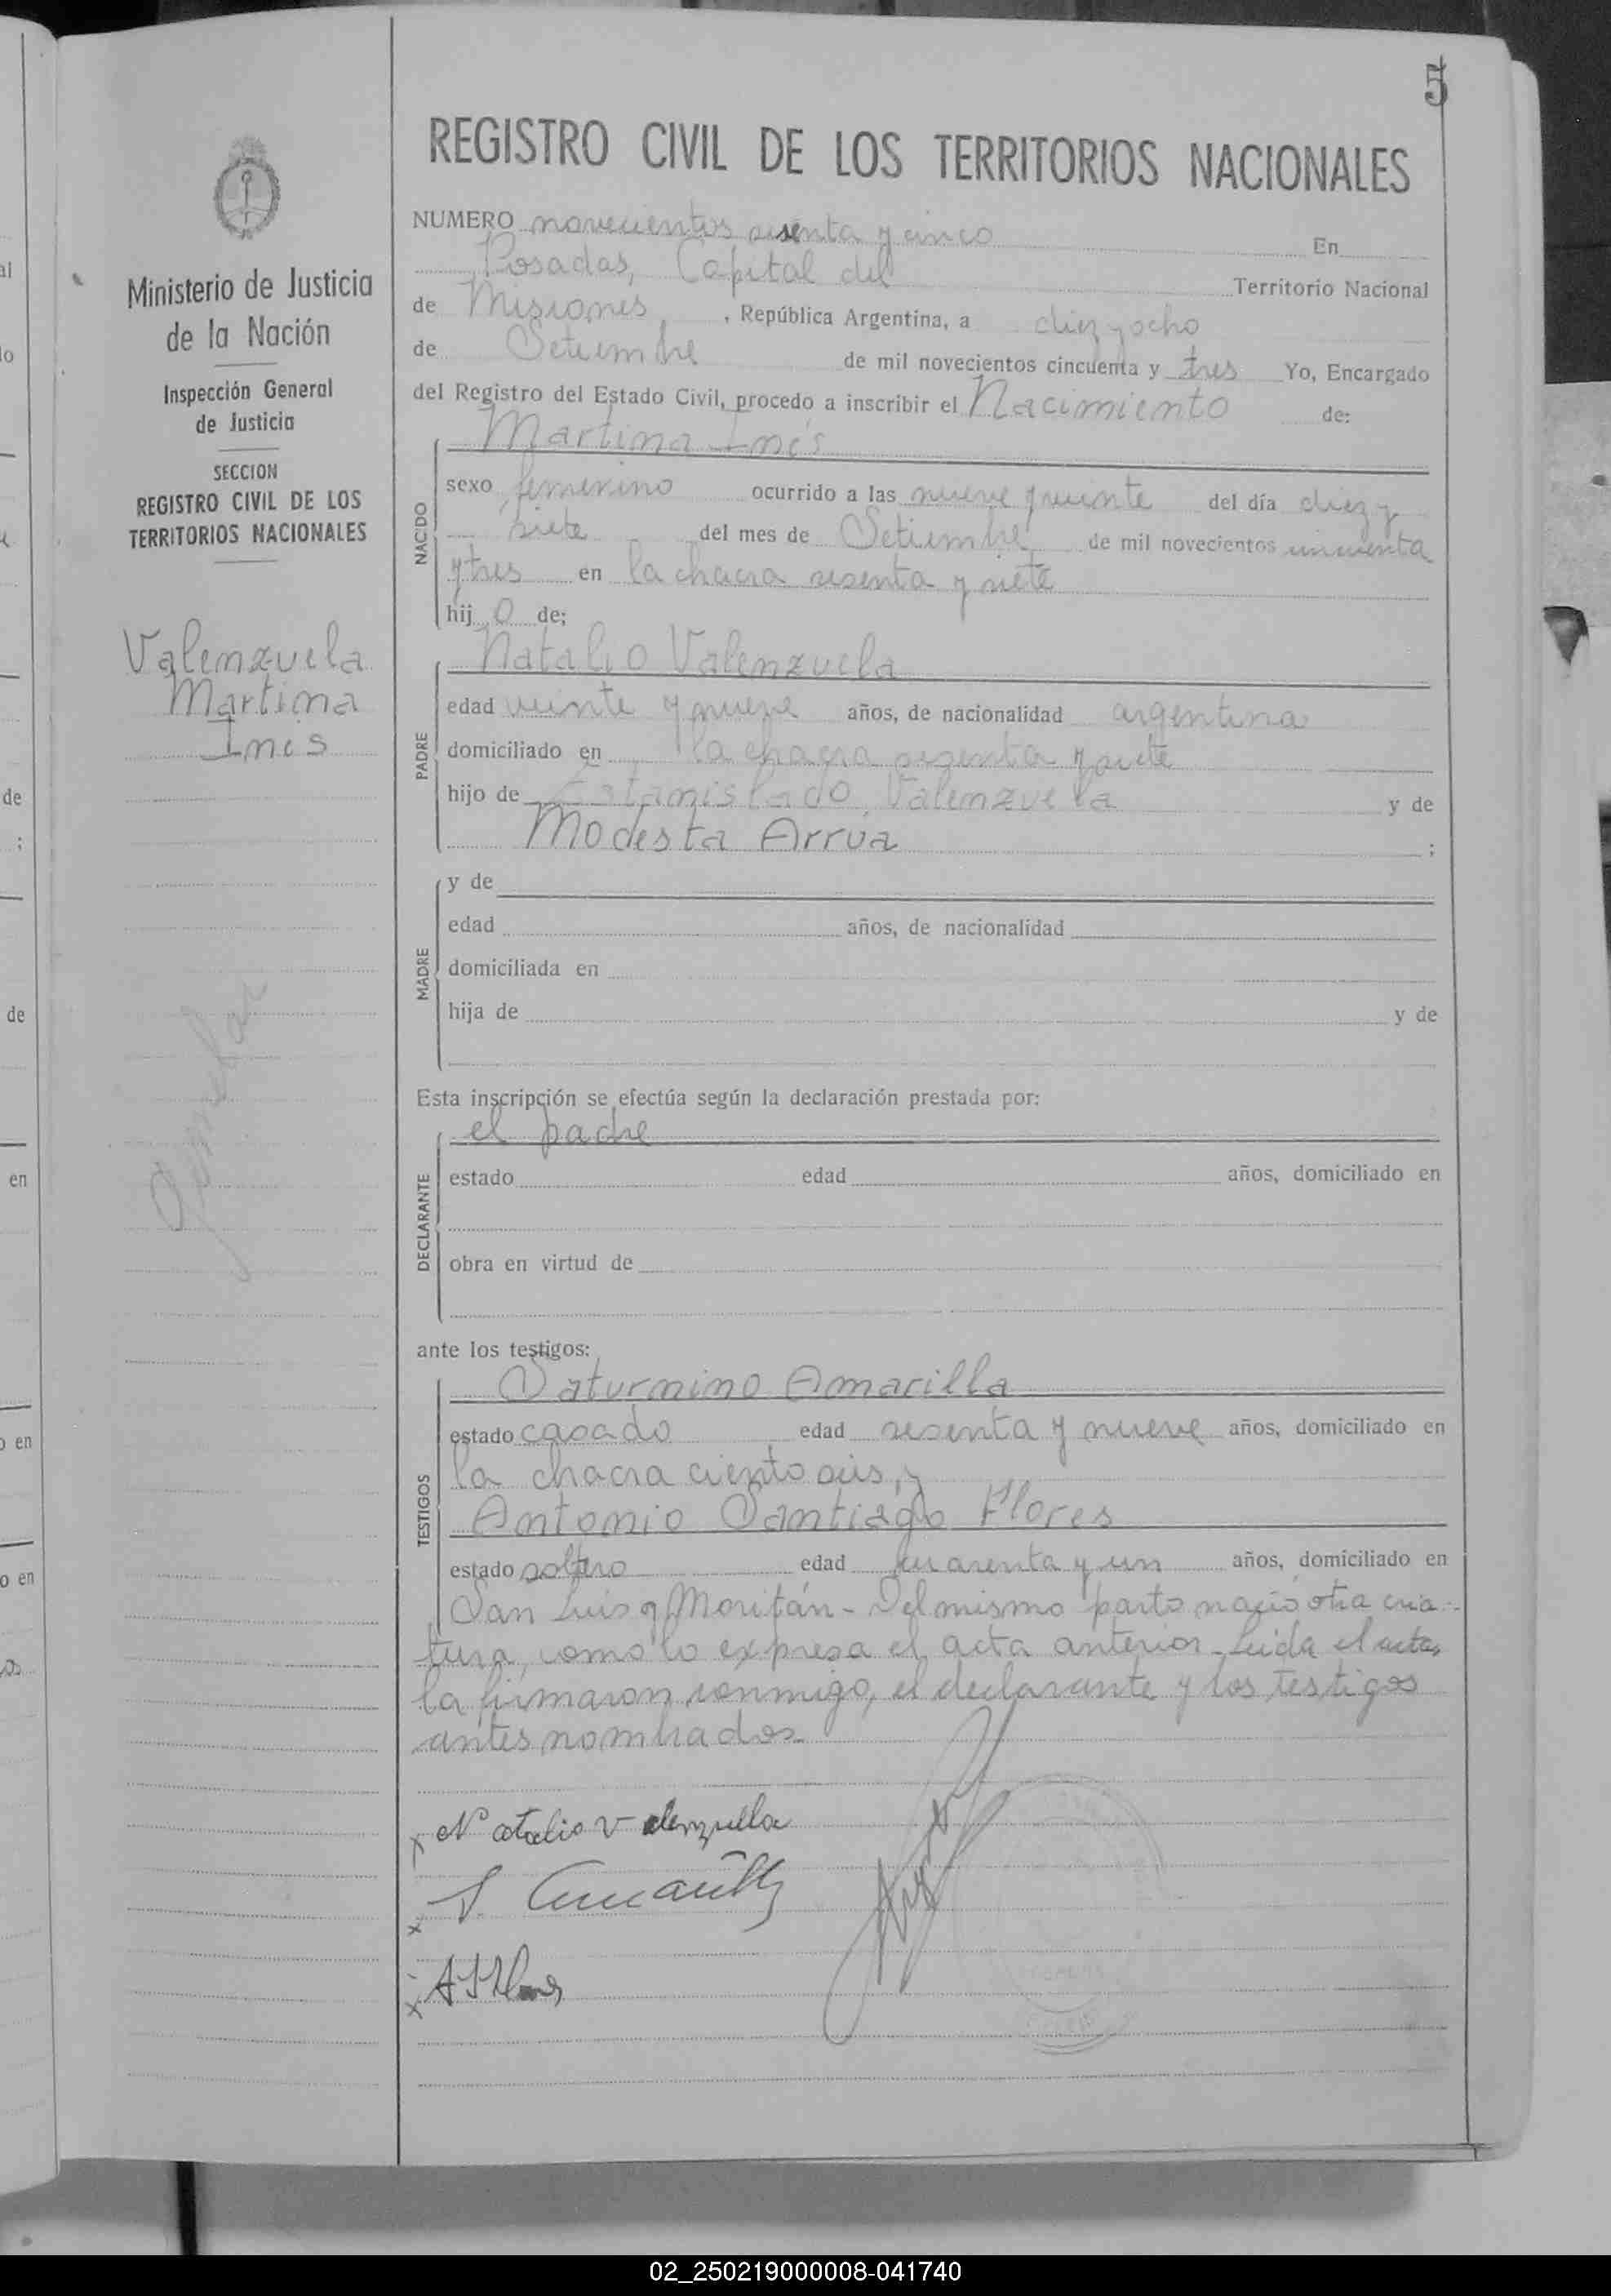 5
REGISTRO CIVIL DE LOS TERRITORIOS NACIONALES
Ministerio de Justicia
de la Nación
Inspección General
de Justicia
SECCION
REGISTRO CIVIL DE LOS
TERRITORIOS NACIONALES
Valenzuela
Martina
Inés
Gemelar
NUMERO novecientos sesenta y cinco En
Posadas, Capital del Territorio Nacional
de Misiones, , República Argentina, a diez y ocho
de Setiembre de mil novecientos cincuenta y tres Yo, Encargado
del Registro del Estado Civil, procedo a inscribir el Nacimiento de:
NACIDO
Martina Inés
sexo femenino ocurrido a las nueve y veinte del día diez y
siete del mes de Setiembre de mil novecientos cincuenta
y tres en la chacra sesenta y siete
hij o de;
PADRE
Natalio Valenzuela
edad veinte y nueve años, de nacionalidad argentina
domiciliado en la chacra sesenta y siete
hijo de Estanislado Valenzuela y de
Modesta Arrua ;
MADRE
y de
edad años, de nacionalidad
domiciliada en
hija de y de
Esta inscripción se efectúa según la declaración prestada por:
DECLARANTE
el padre
estado edad años, domiciliado en
obra en virtud de
ante los testigos:
TESTIGOS
Saturnino Amarilla
estado casado edad sesenta y nueve años, domiciliado en
la chacra ciento seis, y
Antonio Santiago Flores
estado soltero edad cuarenta y un años, domiciliado en
San Luis y Moritán - Del mismo parto nació otra cria-
tura, como lo expresa el acta anterior - Leida el acta,
la firmaron conmigo, el declarante y los testigos
antes nombrados.
x Natalio Valenzuela
x S. Amarilla
x A S Flores
02_250219000008-041740